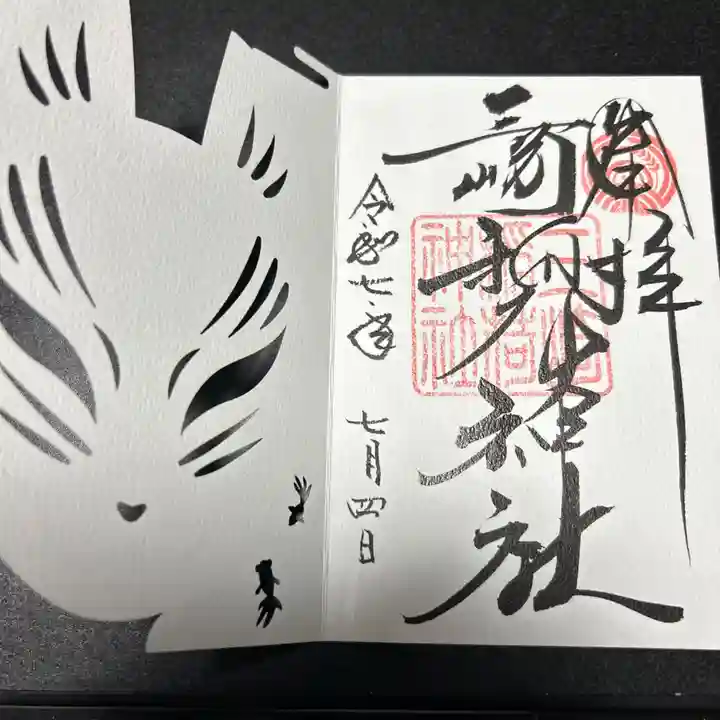 奉拝
三崎稲荷神社
三崎稲荷神社
令和七年 七月四日